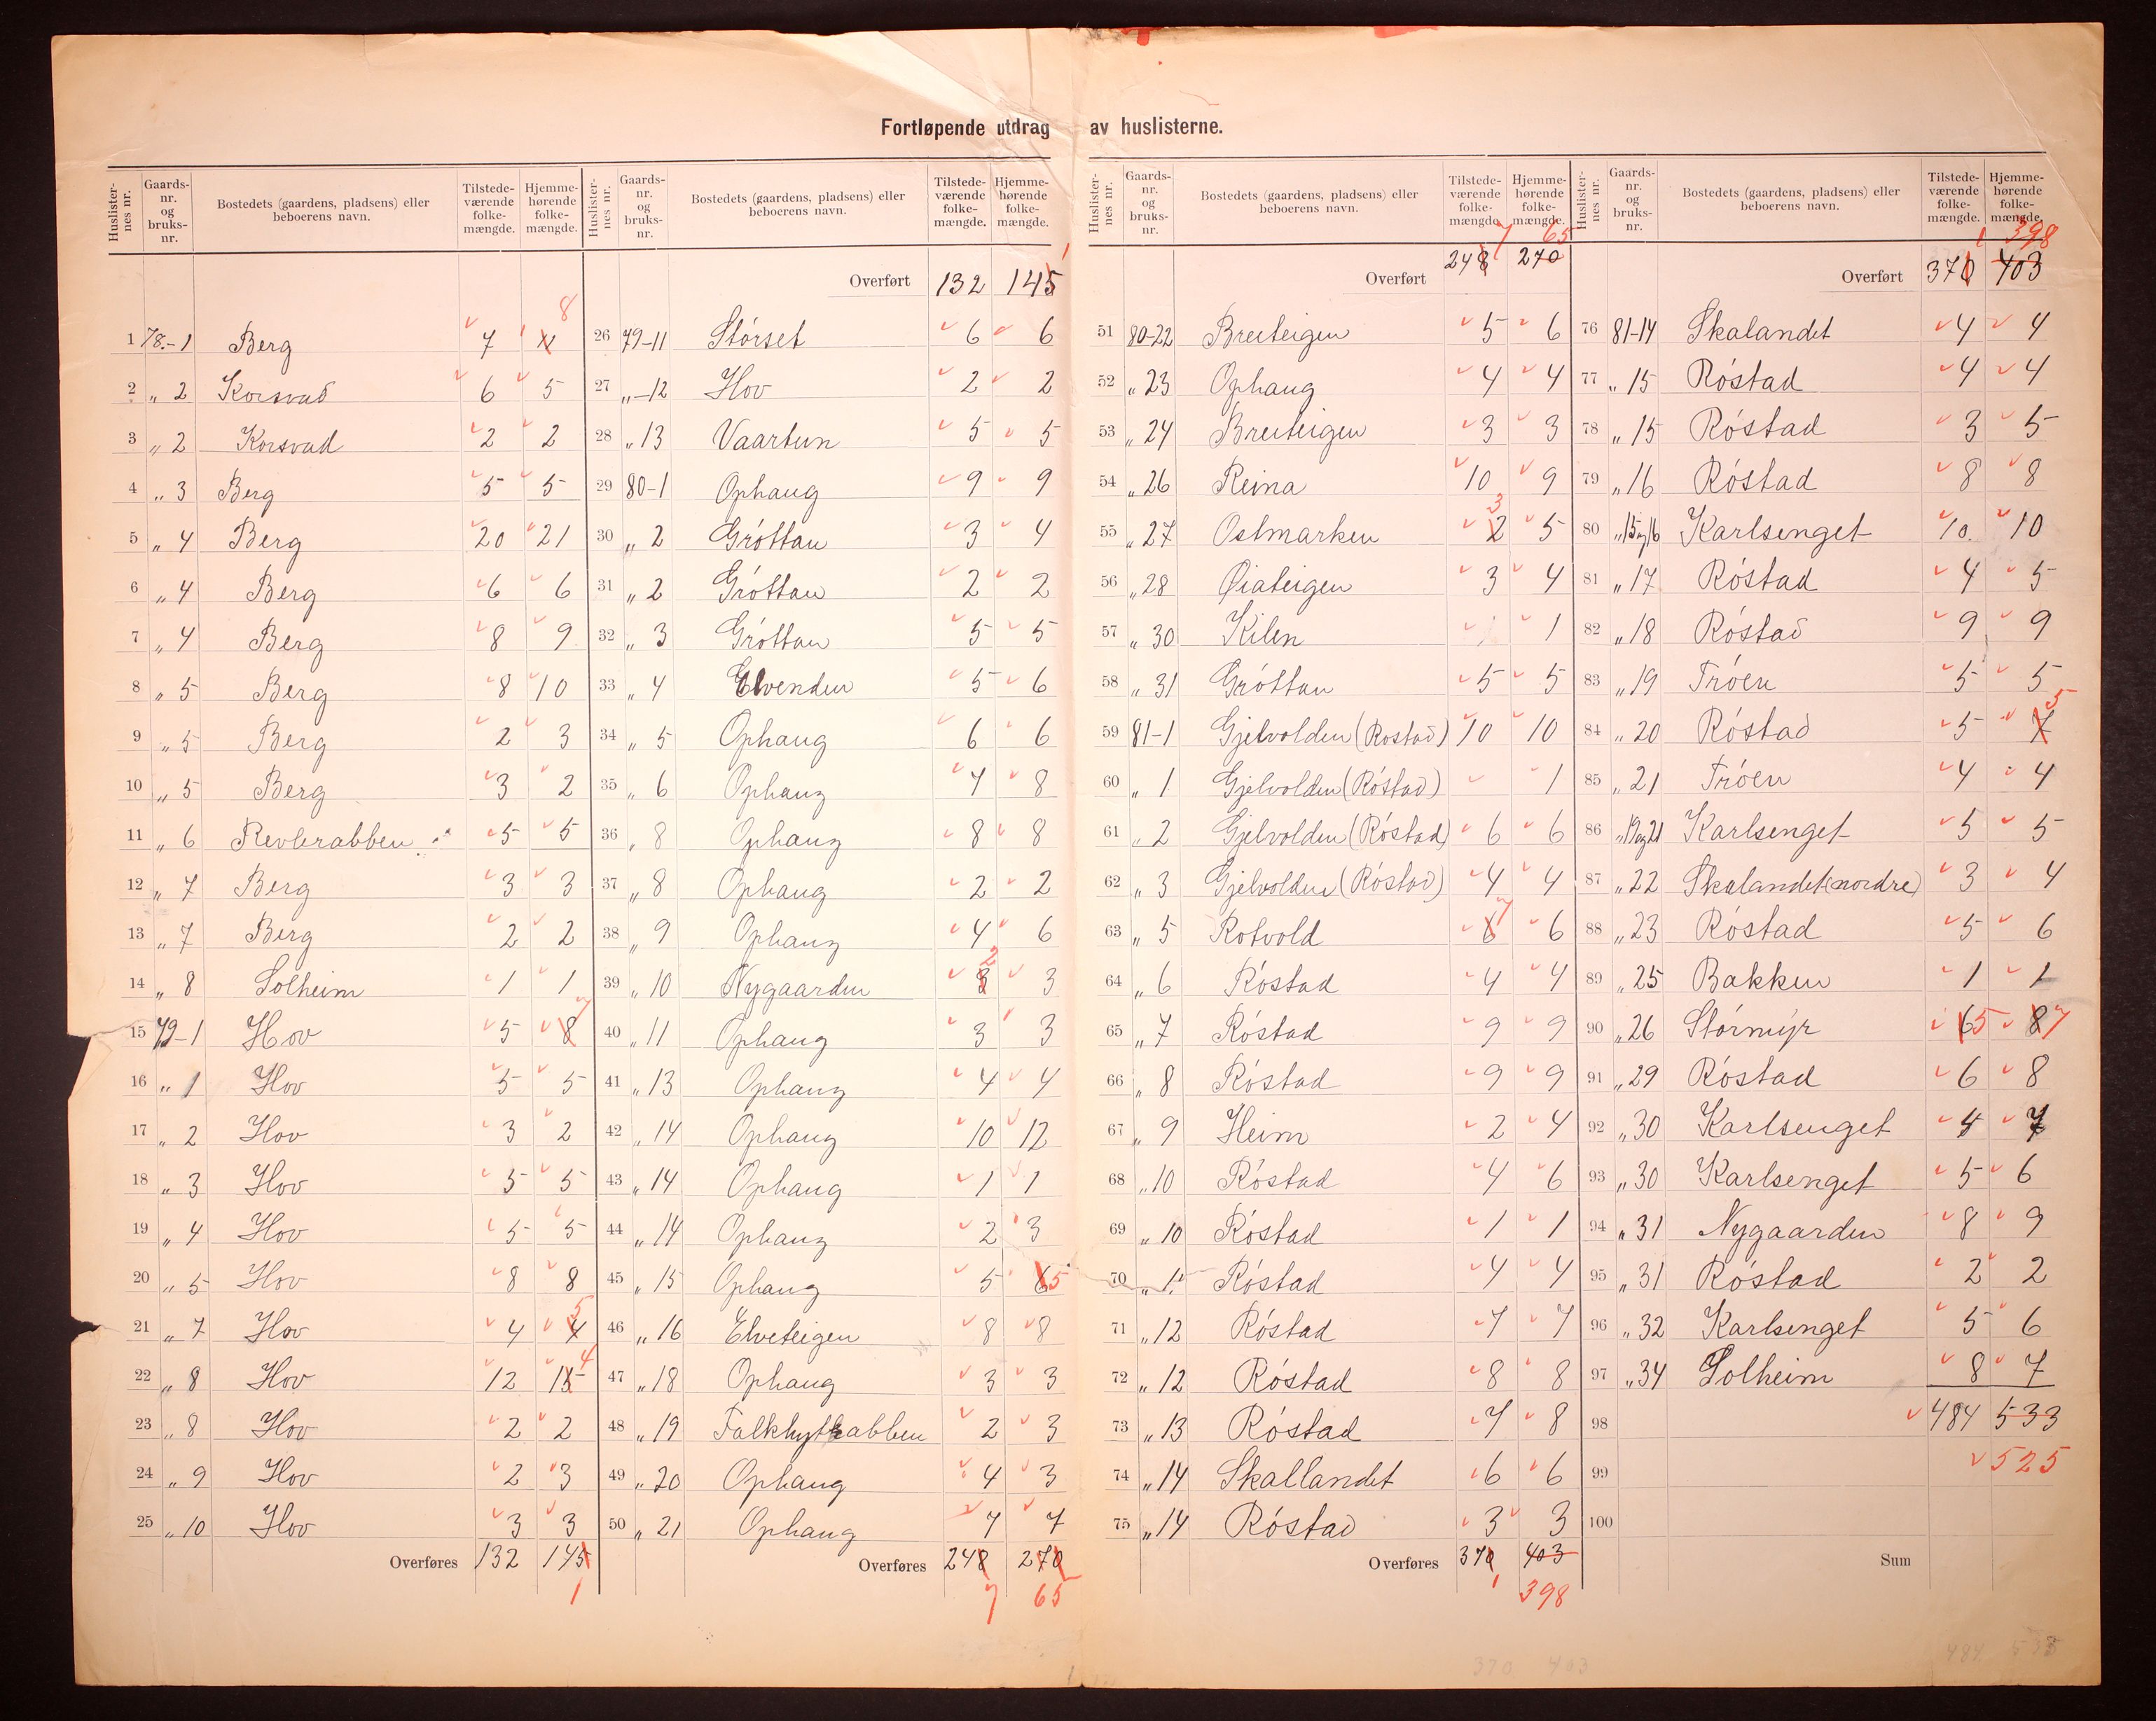 Fortløpende utdrag av huslisterne.
Huslister-nes nr. | Gaards-nr. og bruks-nr. | Bostedets (gaardens, pladsens) eller beboerens navn. | Tilstede-værende folke-mængde. | Hjemme-hørende folke-mængde.
1 78.-1 Berg 7 4 8
2 „ 2 Korsvad 6 5
3 „ 2 Korsvad 2 2
4 „ 3 Berg 5 5
5 „ 4 Berg 20 21
6 „ 4 Berg 6 6
7 „ 4 Berg 8 9
8 „ 5 Berg 8 10
9 „ 5 Berg 2 3
10 „ 5 Berg 3 2
11 „ 6 Revlerabben 5 5
12 „ 7 Berg 3 3
13 „ 7 Berg 2 2
14 „ 8 Solheim 1 1
15 79-1 Hov 5 8 7
16 „ 1 Hov 5 5
17 „ 2 Hov 3 2
18 „ 3 Hov 5 5
19 „ 4 Hov 5 5
20 „ 5 Hov 8 8
21 „ 7 Hov 4 4 5
22 „ 8 Hov 12 15 4
23 „ 8 Hov 2 2
24 „ 9 Hov 2 3
25 „ 10 Hov 3 3
Overføres 132 145
1
Huslister-nes nr. | Gaards-nr. og bruks-nr. | Bostedets (gaardens, pladsens) eller beboerens navn. | Tilstede-værende folke-mængde. | Hjemme-hørende folke-mængde.
Overført 132 145 1
26 79-11 Störset 6 6
27 „-12 Hov 2 2
28 „ 13 Vaartun 5 5
29 80-1 Ophaug 9 9
30 „ 2 Gróttan 3 4
31 „ 2 Gróttan 2 2
32 „ 3 Gróttan 5 5
33 „ 4 Elvenden 5 6
34 „ 5 Ophaug 6 6
35 „ 6 Ophaug 7 8
36 „ 8 Ophaug 8 8
37 „ 8 Ophaug 2 2
38 „ 9 Ophaug 4 6
39 „ 10 Nygaarden 3 2 3
40 „ 11 Ophaug 3 3
41 „ 13 Ophaug 4 4
42 „ 14 Ophaug 10 12
43 „ 14 Ophaug 1 1
44 „ 14 Ophaug 2 3
45 „ 15 Ophaug 5 6 5
46 „ 16 Elveteigen 8 8
47 „ 18 Ophaug 3 3
48 „ 19 Falkhytrabben 2 3
49 „ 20 Ophaug 4 3
50 „ 21 Ophaug 7 7
Overføres 248 270
7 65
Huslister-nes nr. | Gaards-nr. og bruks-nr. | Bostedets (gaardens, pladsens) eller beboerens navn. | Tilstede-værende folke-mængde. | Hjemme-hørende folke-mængde.
7 65
Overført 248 270
51 80-22 Breiteigen 5 6
52 „ 23 Ophaug 4 4
53 „ 24 Breiteigen 3 3
54 „ 26 Reina 10 9
55 „ 27 Ostmarken 2 3 5
56 „ 28 Øiateigen 3 4
57 „ 30 Kilen 1
58 „ 31 Gróttan 5 5
59 81-1 Gjelvolden (Rostad) 10 10
60 „ 1 Gjelvolden (Róstad) 1
61 „ 2 Gjelvolden (Róstad) 6 6
62 „ 3 Gjelvolden (Róstad) 4 4
63 „ 5 Rotvold 6 7 6
64 „ 6 Róstad 4 4
65 „ 7 Róstad 9 9
66 „ 8 Róstad 9 9
67 „ 9 Heim 2 4
68 „ 10 Róstad 4 6
69 „ 10 Róstad 1 1
70 „ 11 Róstad 4 4
71 „ 12 Róstad 7 7
72 „ 12 Róstad 8 8
73 „ 13 Róstad 7 8
74 „ 14 Skallandet 6 6
75 „ 14 Róstad 3 3
Overføres 370 403
1 398
Huslister-nes nr. | Gaards-nr. og bruks-nr. | Bostedets (gaardens, pladsens) eller beboerens navn. | Tilstede-værende folke-mængde. | Hjemme-hørende folke-mængde.
1 398
Overført 370 403
76 81-14 Skalandet 4 4
77 „ 15 Róstad 4 4
78 „ 15 Róstad 3 5
79 „ 16 Róstad 8 8
80 „ 15 og 16 Karlsenget 10. 10
81 „ 17 Róstad 4 5
82 „ 18 Róstad 9 9
83 „ 19 Tróen 5 5
84 „ 20 Róstad 5 7 5
85 „ 21 Tróen 4 4
86 „ 19 og 21 Karlsenget 5 5
87 „ 22 Skalandet (nordre) 3 4
88 „ 23 Róstad 5 6
89 „ 25 Bakken 1 1
90 „ 26 Stórmyr 6 5 8 7
91 „ 29 Róstad 6 8
92 „ 30 Karlsenget 4 7
93 „ 30 Karlsenget 5 6
94 „ 31 Nygaarden 8 9
95 „ 31 Róstad 2 2
96 „ 32 Karlsenget 5 6
97 „ 34 Solheim 8 7
98 484 533
99 525
100
Sum
370 403
484 533